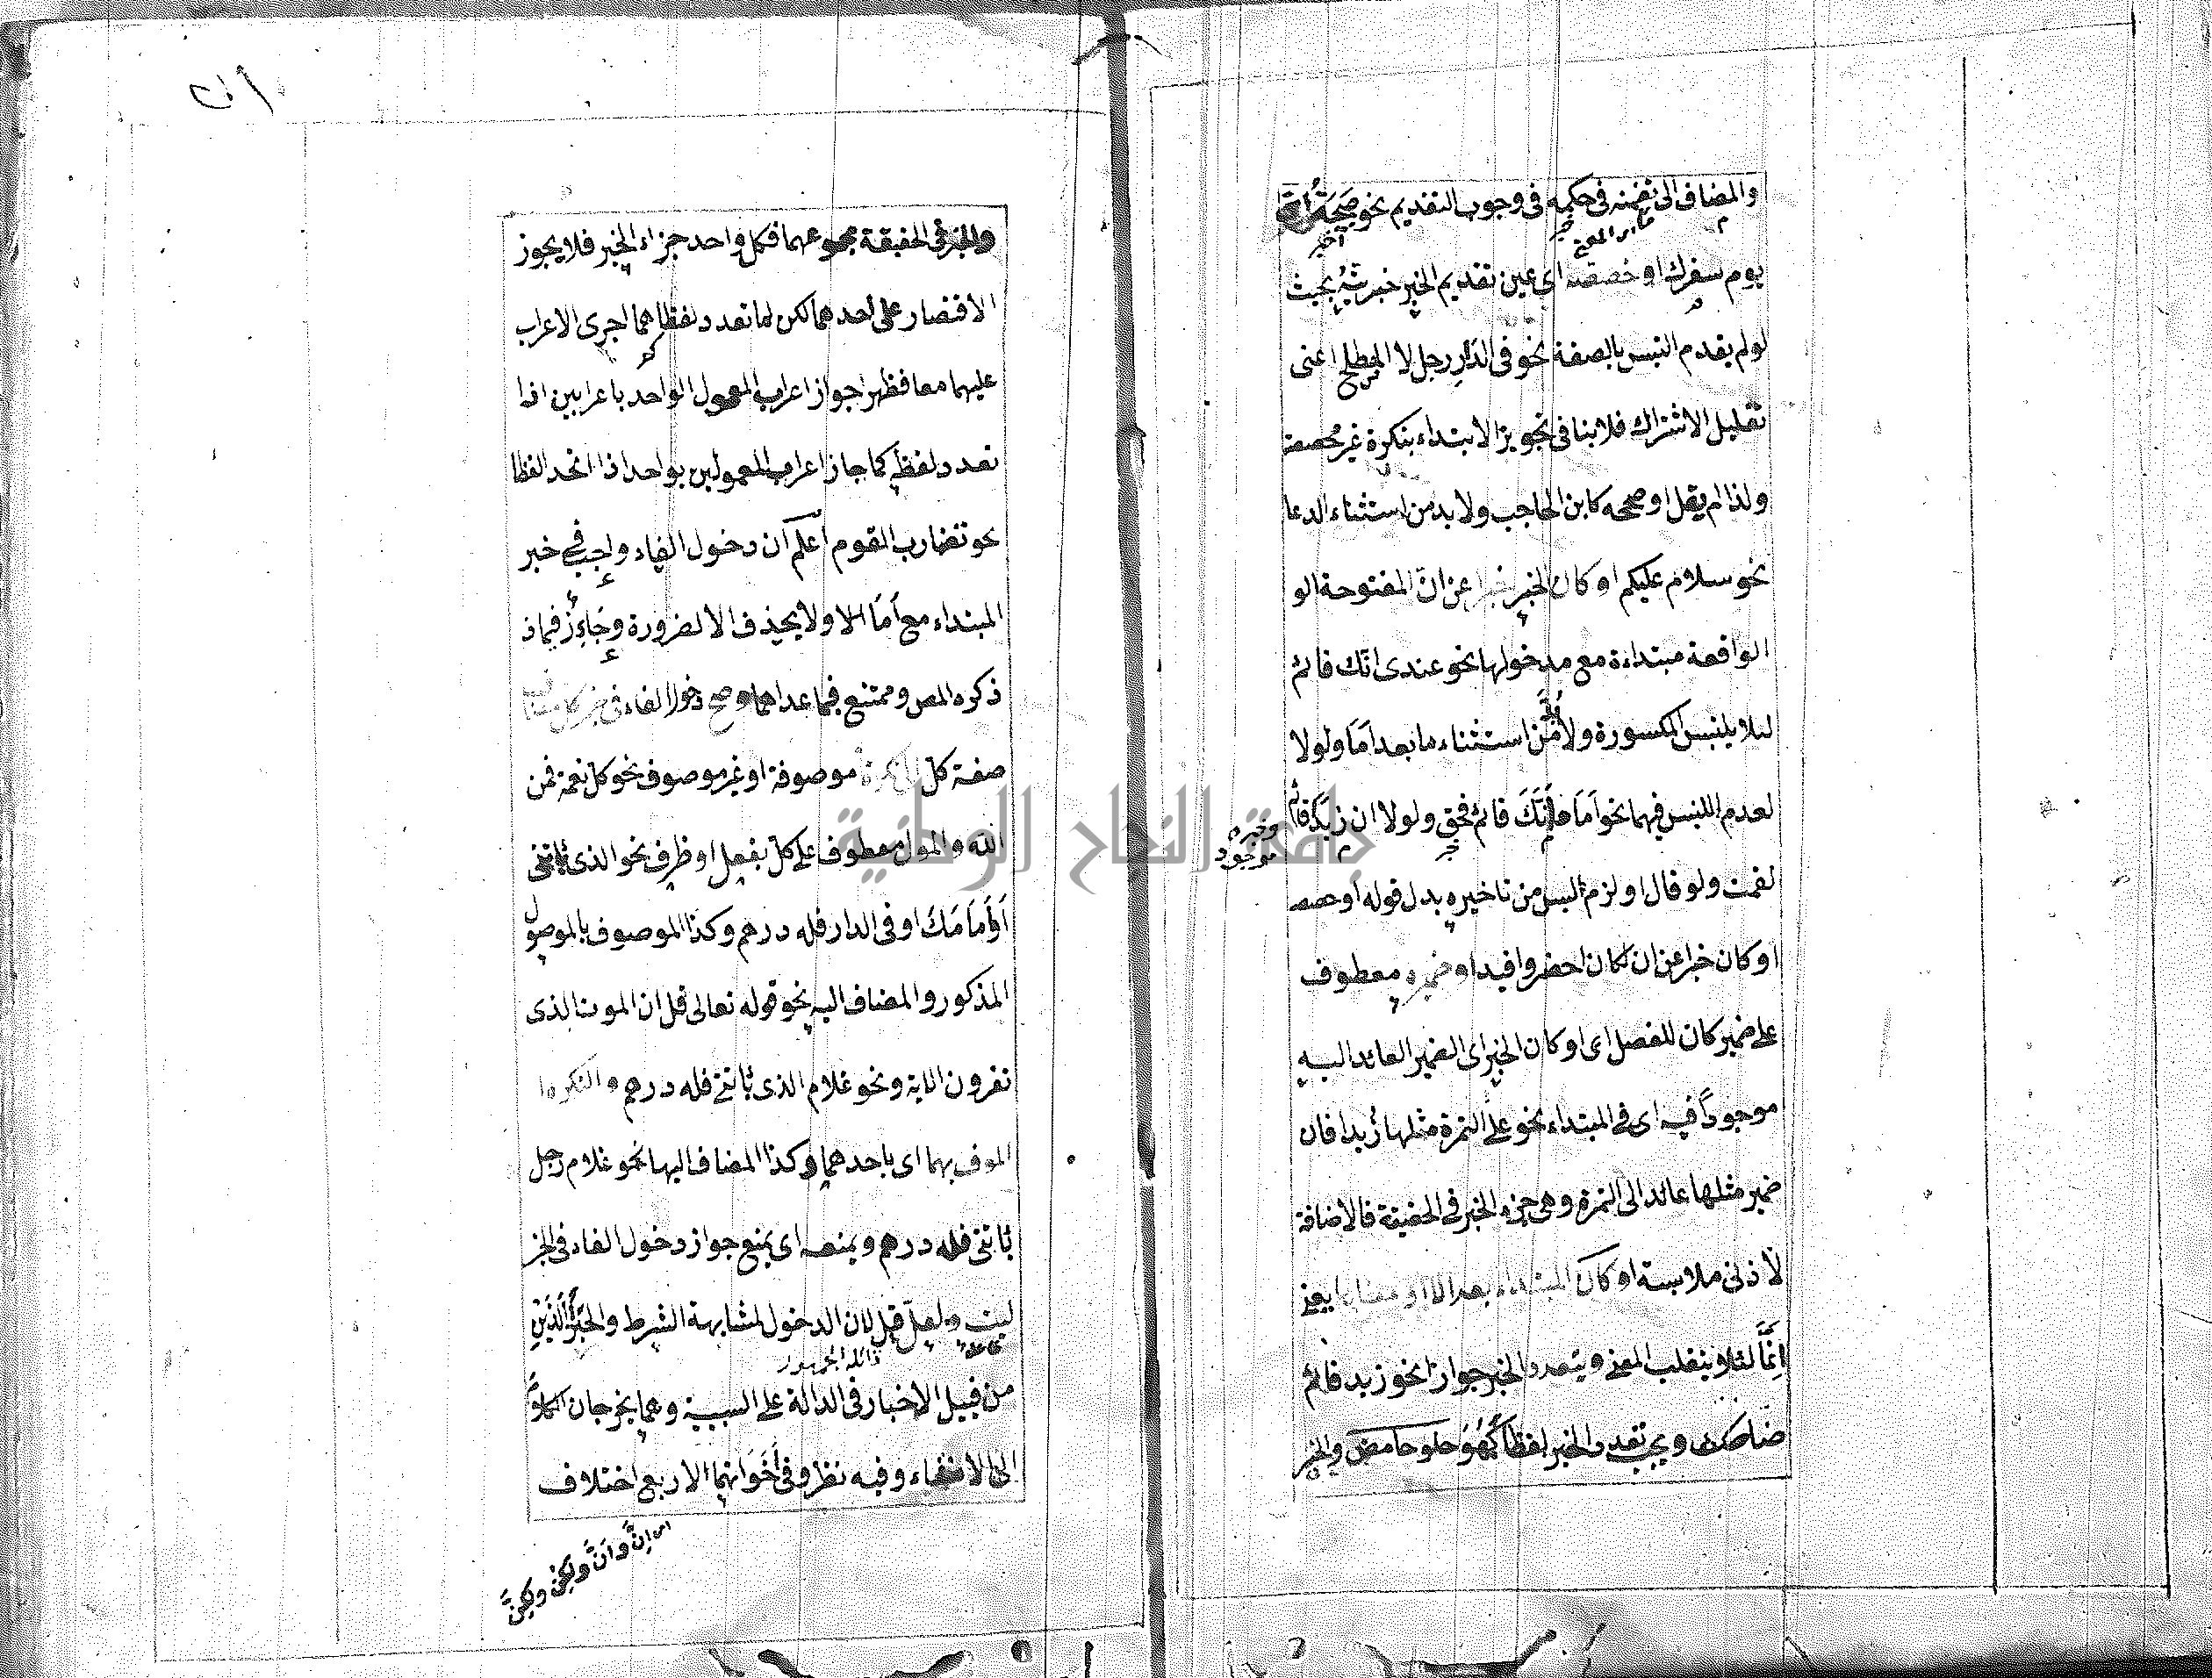 والمضاف الى تضمنه فى حكمه فى وجوب التقديم نحو صبيحة
يوم سفرك او خصصه اى عين تقديم الخبر خبريته بحيث
لو لم يقدم التبس بالصفة نحو فى الدار رجل لا المصطلح اعنى
تقليل الاشتراك فلا ينافى تجويز الابتداء بنكرة غير مخصصة
ولذا لم يقل او صححه كابن الحاجب ولا بد من استثناء الدعا
نحو سلام عليكم او كان الخبر خبرا عن انّ المفتوحة الو
الواقعة مبتداءة مع مدخولها نحو عندى انّك قائم
لئلا يلتبس المكسورة ولا من استثناء ما بعد اَمّا ولولا
لعدم اللبس فيهما نحو اَمّا اَنّكَ قائم فحق ولولا ان زيدًا قائم
وخبره موجود
لقمت ولو قال او لزم اللبس من تاخيره بدل قوله او خصصه
او كان خبرا عن ان لكان احضر وافيد او ضميره معطوف
على ضمير كان للفصل اى او كان الخبر اى الضمير العائد اليه
موجودًا فيه اى فى المبتداء نحو على التمرة مثلها زبدا فان
ضمير مثلها عائد الى التمرة وهى جزء الخبر فى الحقيقة فالاضافة
لادنى ملابسة او كان المبتداء بعد الا او يعنى
اِنّما لئلا ينقلب المعنى ويتعدد الخبر جوازا نحو زيد قائم
ضاحك ويجب تعدد الخبر لفظا كهُوَ حلو حامض والخبر
والخبر فى الحقيقة مجموعهما فكل واحد جزاء الخبر فلا يجوز
الاقتصار على احدهما لكن لما تعدد لفظاهما اجرى الاعراب
عليهما معا فظهر جواز اعراب المعمول الواحد باعرابين اذا
تعدد لفظه كما جاز اعراب المعمولين بواحد اذا اتحد لفظا
نحو تضارب القوم اعلم ان دخول الفاء واجب فى خبر
المبتداء مع اَمّا الاولا يحذف الا لضرورة وجائز فيما ذ
ذكره المص وممتنع فيما عداهما وصح دخول الفاء فى خبر كل مضاف
صفة كل موصوفة او غير موصوف نحو كل نعمة فمن
الله والمول معطوف على كل بفعل او ظرف نحو الذى ياتينى
اَوْ اَمَامَكَ او فى الدار فله درهم وكذا الموصوف بالموصول
المذكور والمضاف اليه نحو قوله تعالى قل ان الموت الذى
تفرون الاية ونحو غلام الذى ياتينى فله درهم والنكرة ا
الموف بهما اى باحدهما وكذا المضاف اليها نحو غلام رجل
ياتينى فله درهم ويمنعه اى يمنع جواز دخول الفاء فى الخبر
ليت ولعل قيل لان الدخول لمشابهة الشرط والخبر الذين
قائله الجمهور
من قبيل الاخبار فى الدالة على السببية وهما يخرجان الكلام
الى الانشاء وفيه نظر وفى اخواتهما الاربع اختلاف
اى اِنَّ وَاَنَّ وَلٰكِنْ وَلٰكِنَّ
جامعة النجاح الوطنية